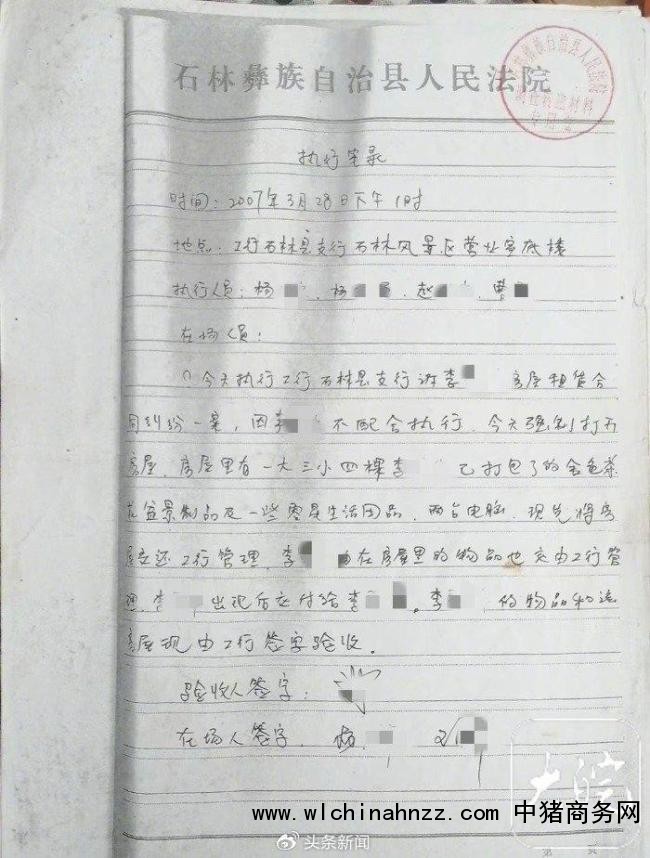 石林彝族自治县人民法院
执行笔录
时间：2007年3月28日下午1时
地点：工行石林县支行石林风景区营业室底楼
执行人员：杨 、杨 员、赵 、
在场人员：
今天执行工行石林县支行诉李 房屋租赁合
同纠纷一案，因李 不配合执行，今天强制打开
房屋，房屋里有一大三小四棵李 已打包了的金色茶
花盆景制品及一些零星生活用品，两台电脑，现先将房
屋交还工行管理，李 在房屋里的物品也交由工行管
理，李 出现后交付给李 。李 的物品和该
房屋现由工行签字验收。
验收人签字：
在场人签字 杨
大皖
www.wlchinahnzz.com 中猪商务网
头条新闻
第 页